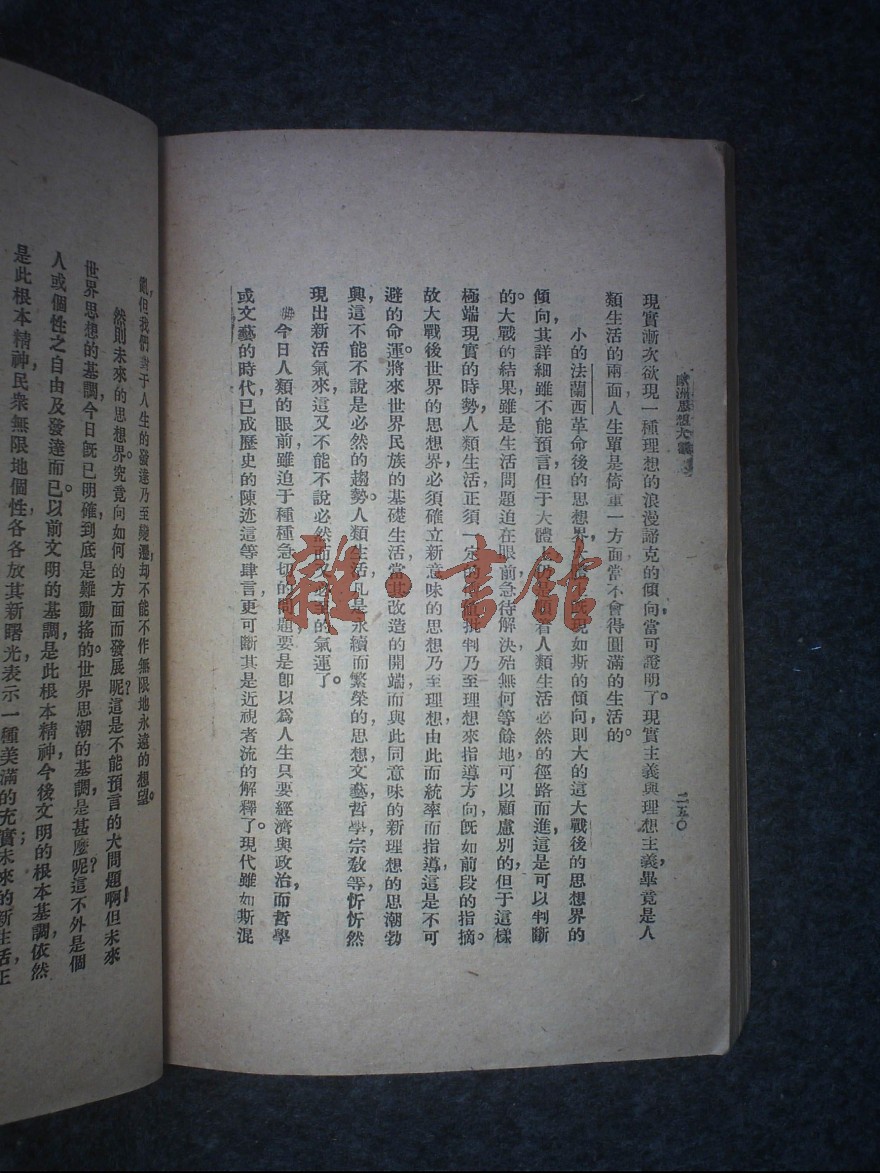 歐洲思想大觀
二五〇
現實漸次欲現一種理想的浪漫諦克的傾向,當可證明了。現實主義與理想主義,畢竟是人
類生活的兩面,人生單是倚重一方面當不會得圓滿的生活的。
小的法蘭西革命後的思想界,既現如斯的傾向,則大的這大戰後的思想界的
傾向,其詳細雖不能預言,但于大體人類生活必然的徑路而進,這是可以判斷
的。大戰的結果,雖是生活問題迫在眼前,急待解決,殆無何等餘地可以顧慮別的,但于這樣
極端現實的時勢,人類生活,正須一定的批判乃至理想來指導方向,旣如前段的指摘。
故大戰後世界的思想界,必須確立新意味的思想乃至理想,由此而統率而指導,這是不可
避的命運。將來世界民族的基礎生活,當其改造的開端,而與此同意味的新理想的思潮勃
興,這不能不說是必然的趨勢。人類生活,凡是永續而繁榮的思想,文藝,哲學,宗敎等,忻忻然
現出新活氣來,這又不能不說必然而又的氣運了。
今日人類的眼前,雖迫于種種急切的問題,要是卽以爲人生只要經濟與政治,而哲學
或文藝的時代,已成歷史的陳迹,這等肆言,更可斷其是近視者流的解釋了。現代雖如斯混
亂,但我們對于人生的發達乃至變遷,却不能不作無限地永遠的想望。
然則未來的思想界,究竟向如何的方面而發展呢?這是不能預言的大問題啊!但未來
世界思想的基調,今日旣已明確,到底是難動搖的世界思潮的基調,是甚麼呢?這不外是個
人或個性之自由及發達而已。以前文明的基調,是此根本精神,今後文明的根本基調,依然
是此根本精神,民衆無限地個性各各放其新曙光,表示一種美滿的充實未來的新生活正
雜·書館